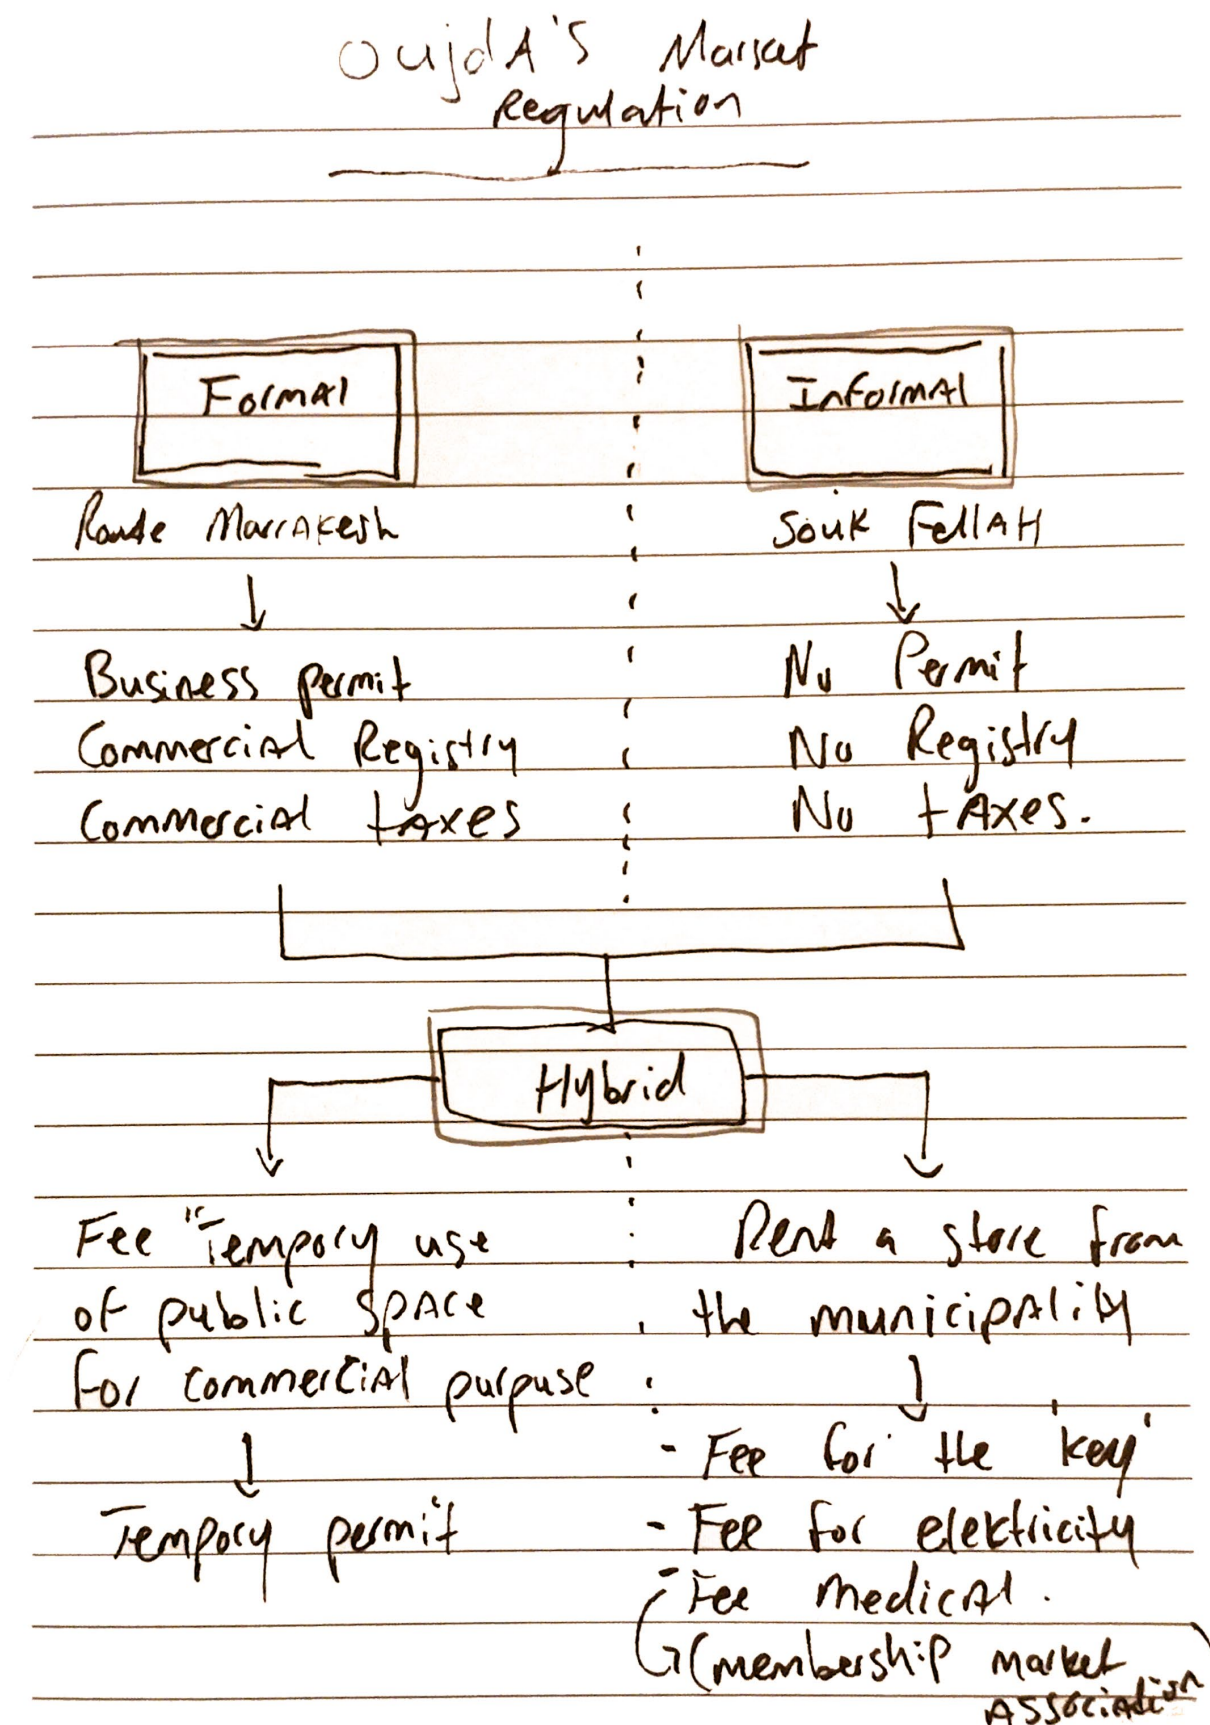 OujdA's Market
Regulation
Formal
Informal
Route Marrakesh
Souk FellAH
Business permit
Commercial Registry
Commercial taxes
No Permit
No Registry
No taxes.
Hybrid
Fee "Tempory use
of public space
for commercial purpuse
Tempory permit
Rent a store from
the municipality
- Fee for the 'key'
- Fee for elektricity
- Fee medical.
(membership market
association)